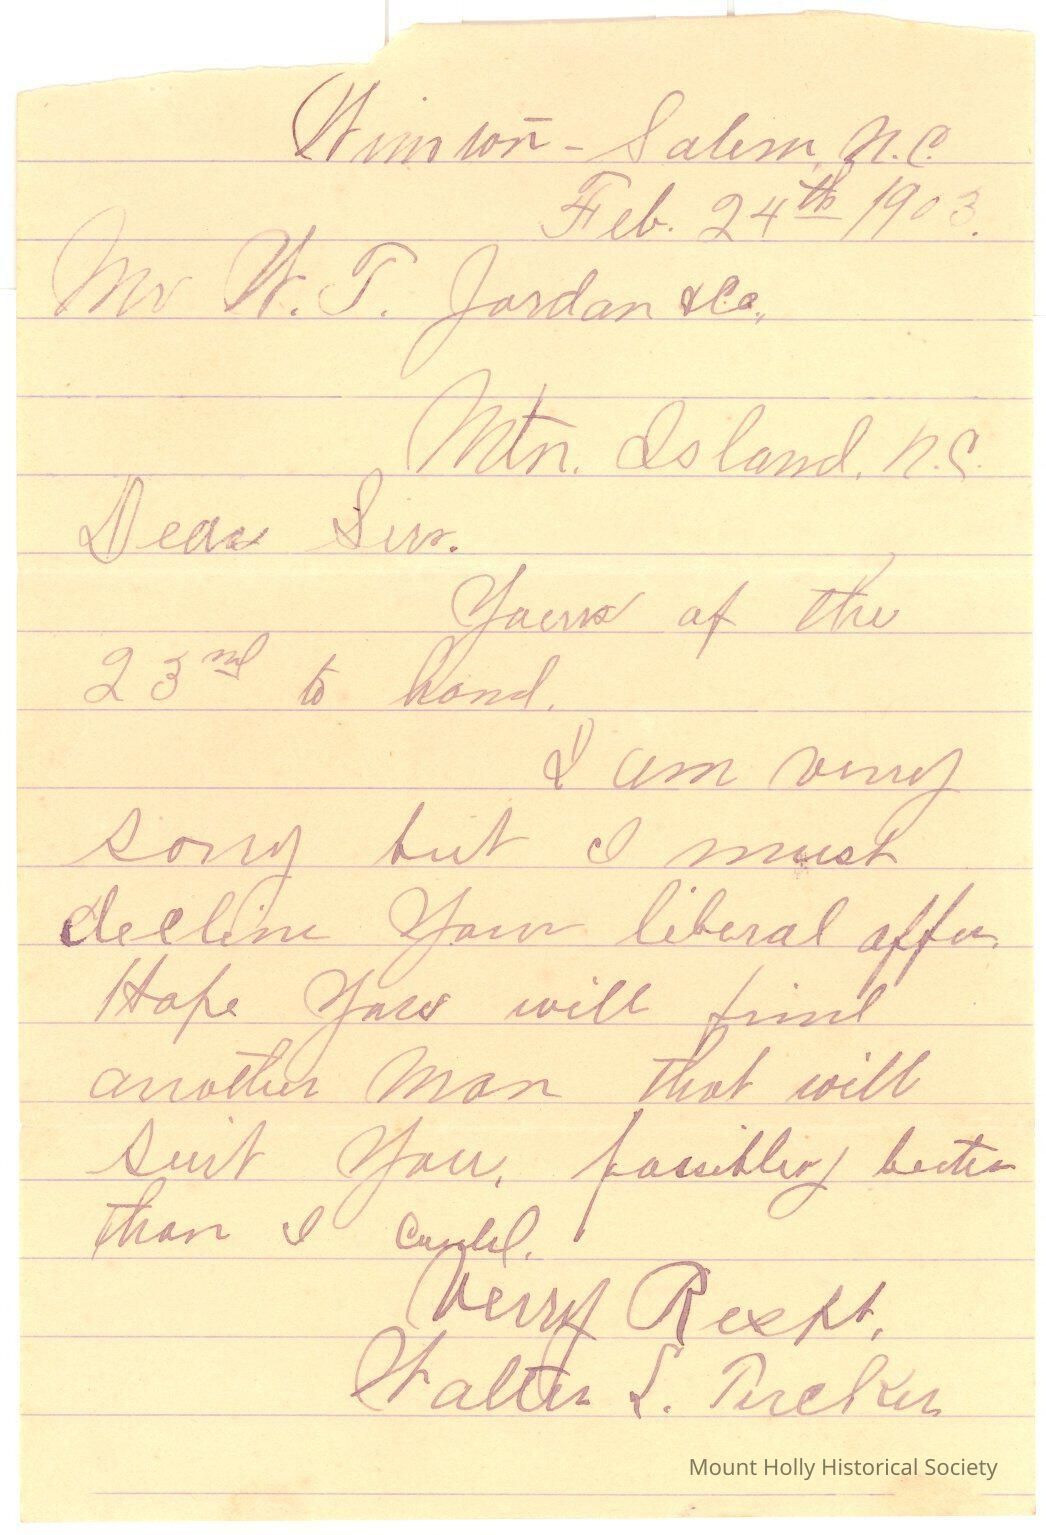 Winston - Salem, N.C.
Feb. 24th 1903.
Mr W. T. Jordan & Co.,
Mtn. Island, N.C.
Dear Sir.
Yours of the
23rd to hand.
I am very
sorry but I must
decline your liberal offer.
Hope you will find
another man that will
suit you, possibly better
than I could.
Very Respt,
Walter L. Tucker
Mount Holly Historical Society